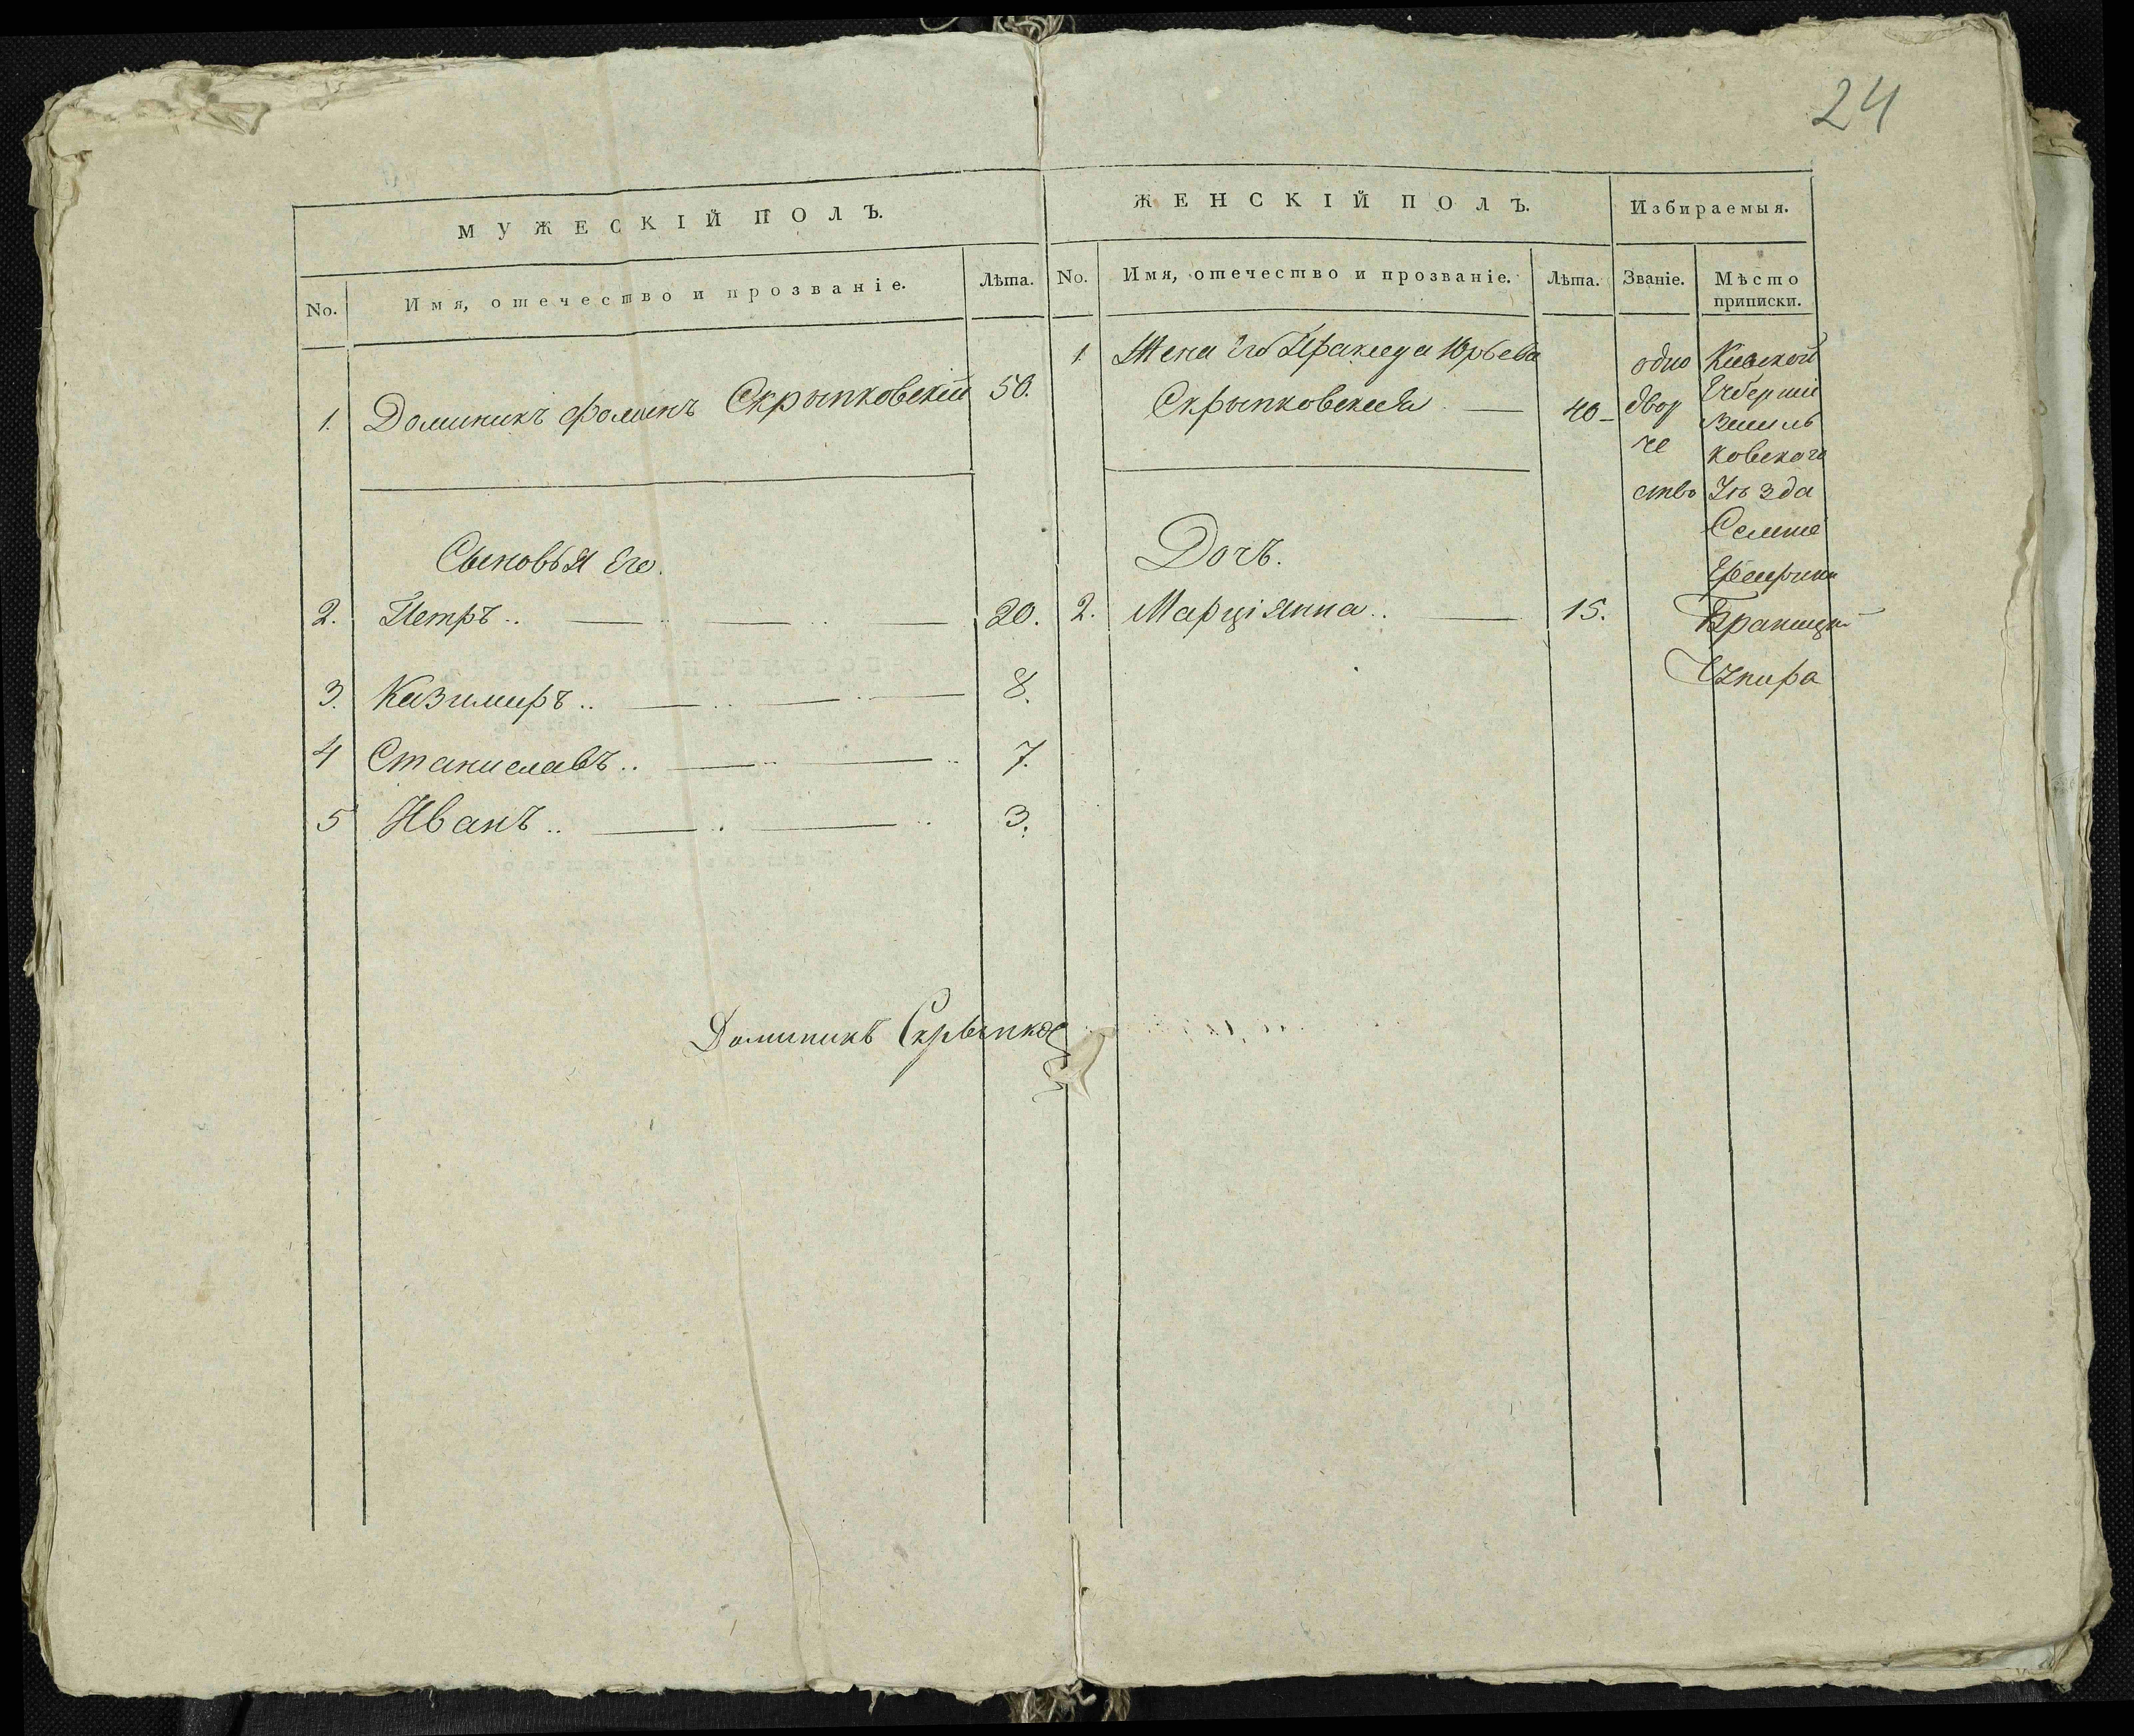 24
МУЖЕСКІЙ ПОЛЪ.
No. Имя, отечество и прозваніе. Лѣта.
1. Доминикъ Фоминъ Скрыпковскій 50.
Сыновья Его.
2. Петръ .. 20.
3. Казимиръ .. 8.
4 Станиславъ .. 7.
5 Иванъ .. 3.
Доминикъ Скрыпков
ЖЕНСКІЙ ПОЛЪ.
No. Имя, отечество и прозваніе. Лѣта.
1. Жена Его Юрьева
Скрыпковская 40
Дочь.
2. Марціянна .. 15.
Избираемыя.
Званіе.
одно
двор
че
ство
Мѣсто
приписки.
Кіевской
Губерніи
Василь
ковскаго
Уѣзда